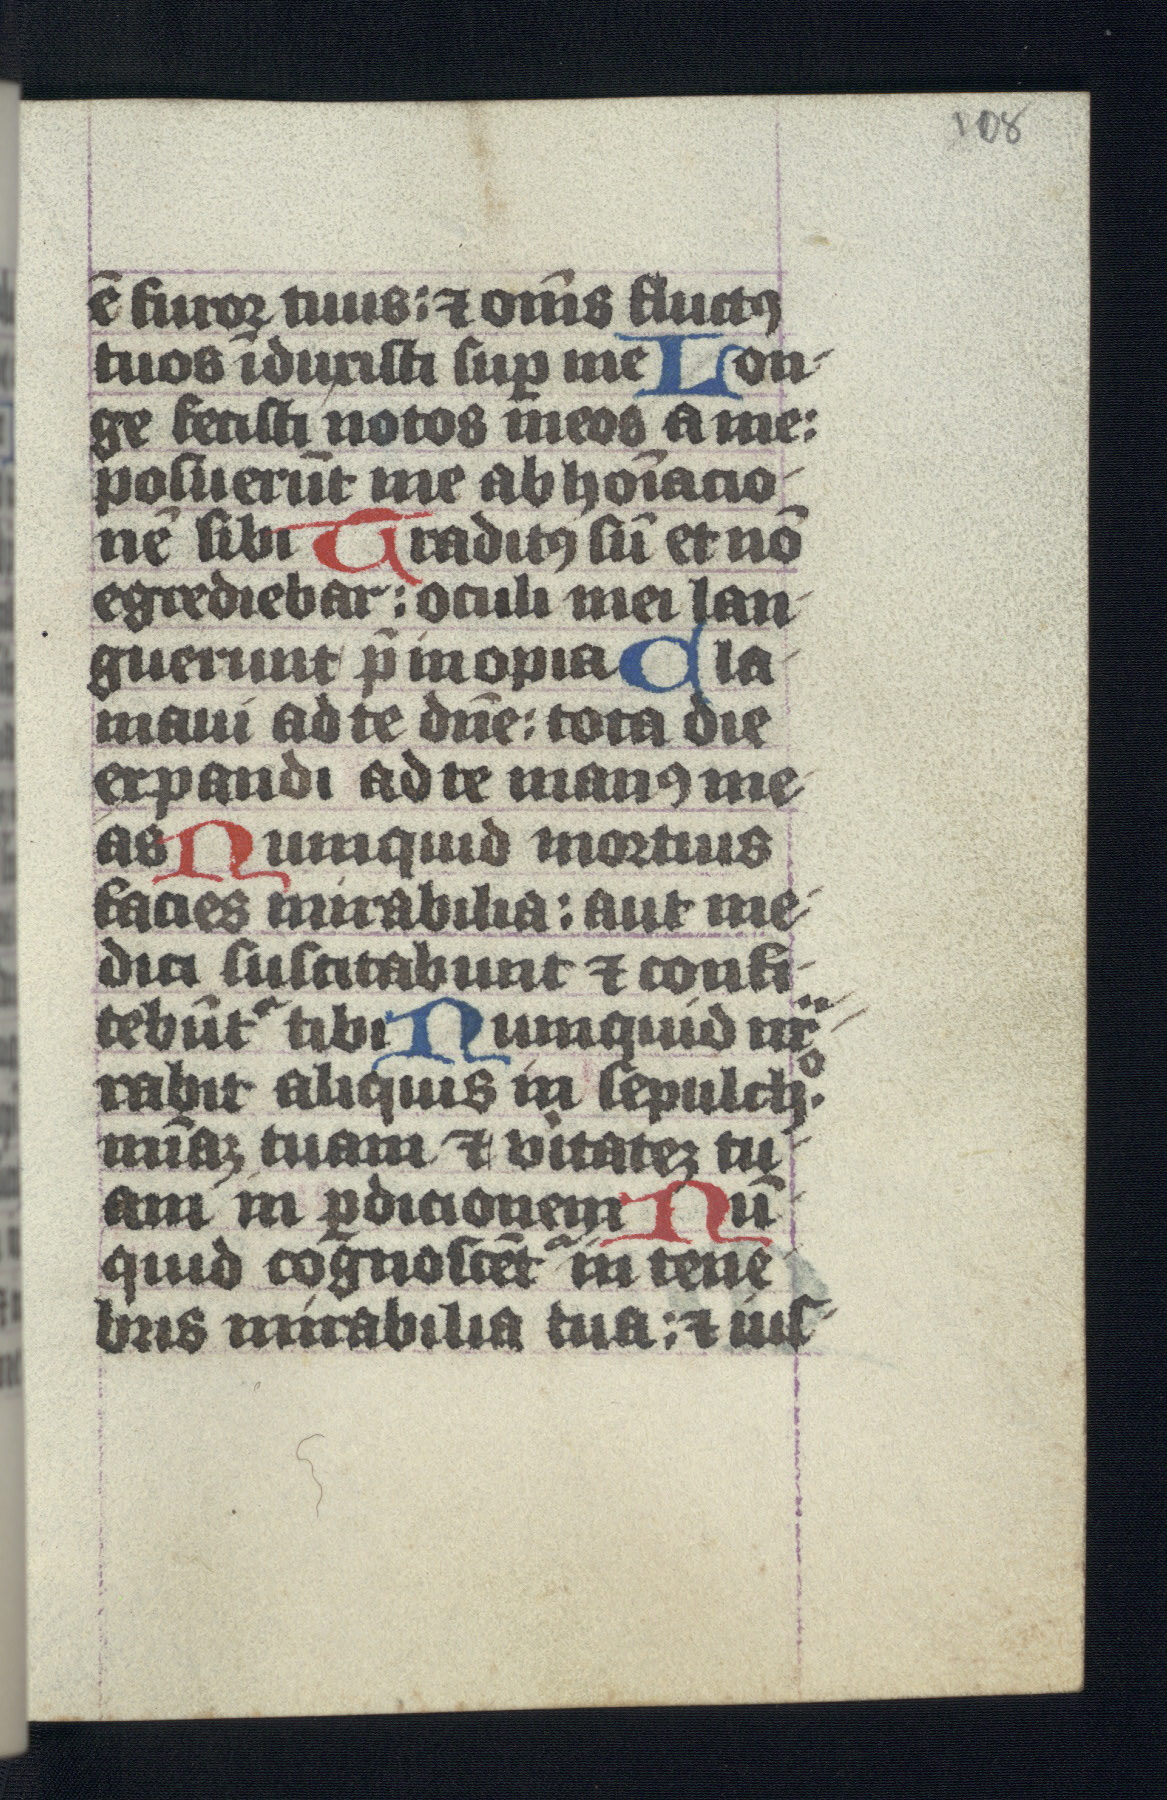 108
ē furor tuus: ⁊ om̄s fluctꝰ
tuos īduxisti suꝑ me Lon-
ge fecisti notos meos a me:
posuerūt me abhoīacio-
nē sibi Traditꝰ sū et nō
egrediebar: oculi mei lan-
guerunt p̄ inopia Cla-
maui ad te dn̄e: tota die
expandi ad te manꝰ me-
as Numquid mortuis
facies mirabilia: aut me-
dici suscitabunt ⁊ confi-
tebūtᷣ tibi Numquid nr̄-
rabit aliquis in sepulchͦ.
mīaꝫ tuam ⁊ v̾itateꝫ tu-
am in ꝑdicionem Nū-
quid cognoscētᷣ in tene-
bris mirabilia tua: ⁊ ius-